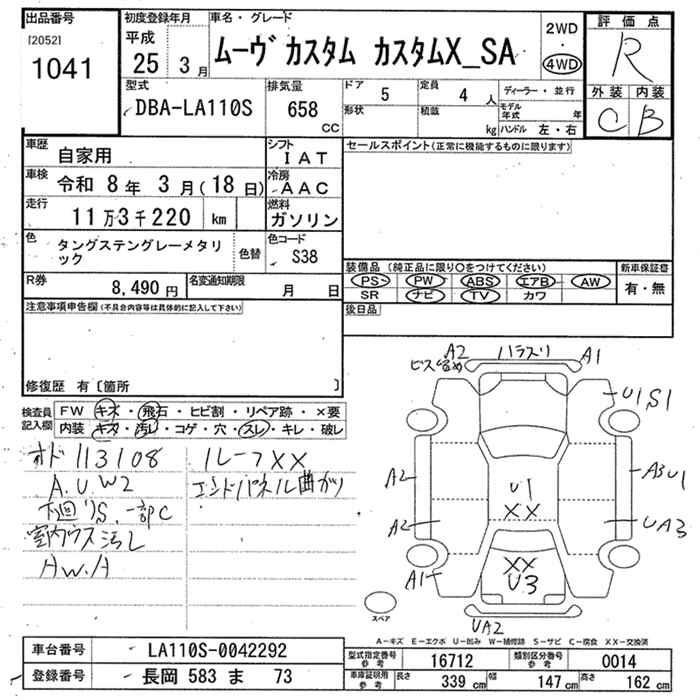 出品番号
[2052]
1041
初度登録年月
平成
25 3月
車名・グレード
ムーヴ カスタム カスタムX_SA
2WD
・
4WD
評価点
R
外装 内装
C B
型式
DBA-LA110S
排気量
658
CC
ドア 5
形状
定員 4 人
積載 kg
ディーラー・並行
モデル年式 年
ハンドル 左・右
車歴
自家用
シフト
IAT
車検
令和 8年 3月(18日)
冷房
AAC
走行
11万3千220 km
燃料
ガソリン
色
タングステングレーメタリック
色替
色コード
S38
R券
8,490 円
名変通知期限
月 日
セールスポイント(正常に機能するものに限ります)
装備品 (純正品に限り○をつけてください)
PS PW ABS エアB AW
SR ナビ TV カワ
新車保証書
有・無
後日品
注意事項申告欄(不具合内容等は具体的に記入して下さい)
修復歴 有〔箇所 〕
検査員記入欄
FW キズ・飛石・ヒビ割・リペア跡・×要
内装 キズ・汚れ・コゲ・穴・スレ・キレ・破レ
オド113108
A.U W2
下回りS.一部C
室内ウス汚レ
AW.A
1ルーフXX
エンドパネル曲がり
A2
ビス留め
バラスリ
A1
U1S1
A2
A3U1
U1
XX
A2
UA3
A1
XX
U3
UA2
スペア
A-キズ E-エクボ U-凹み W-補修跡 S-サビ C-腐食 XX-交換済
車台番号
LA110S-0042292
登録番号
長岡 583 ま 73
型式指定番号
参考
16712
類別区分番号
参考
0014
車庫証明用
参考
長さ 339 cm
幅 147 cm
高さ 162 cm